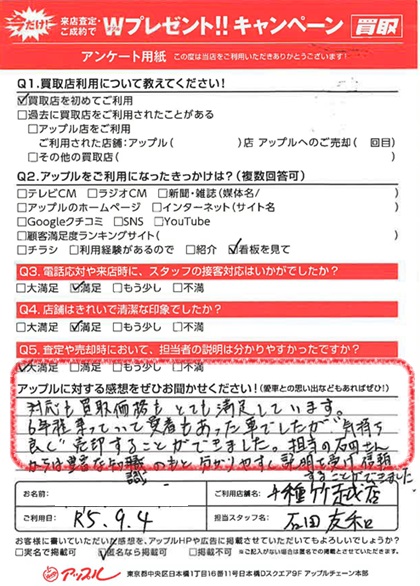 だけ! 来店査定・ご成約で Wプレゼント!! キャンペーン 買取
アンケート用紙 この度は当店をご利用いただきありがとうございます!
Q1.買取店利用について教えてください!
☑買取店を初めてご利用
□過去に買取店をご利用されたことがある
□アップル店をご利用
ご利用された店舗:アップル( )店 アップルへのご売却( 回目)
□その他の買取店( )
Q2.アップルをご利用になったきっかけは?(複数回答可)
□テレビCM □ラジオCM □新聞・雑誌(媒体名/ )
□アップルのホームページ □インターネット(サイト名 )
□Googleクチコミ □SNS □YouTube
□顧客満足度ランキングサイト( )
□チラシ □利用経験があるので □紹介 ☑看板を見て
Q3.電話応対や来店時に、スタッフの接客対応はいかがでしたか?
□大満足 ☑満足 □もう少し □不満
Q4.店舗はきれいで清潔な印象でしたか?
□大満足 ☑満足 □もう少し □不満
Q5.査定や売却時において、担当者の説明は分かりやすかったですか?
□大満足 ☑満足 □もう少し □不満
アップルに対する感想をぜひお聞かせください!(愛車との思い出などもあればぜひ!)
対応も買取価格もとても満足しています。
6年程乗っていて愛着もあった車でしたが気持ち
良く売却することができました。担当の石田さん
からは豊富な知識のもと分かりやすく説明を受け信頼
することができました
お名前: ご利用店舗名: 千種竹越店
ご利用日: R5.9.4 担当スタッフ名: 石田友和
お客様に書いていただいた感想を、アップルHPや広告に掲載させていただいてもよろしいでしょうか?
□実名で掲載可 ☑匿名なら掲載可 ※ご記入がない場合は匿名での掲載とさせていただきます。
アップル 東京都中央区日本橋1丁目16番11号日本橋Dスクエア9F アップルチェーン本部